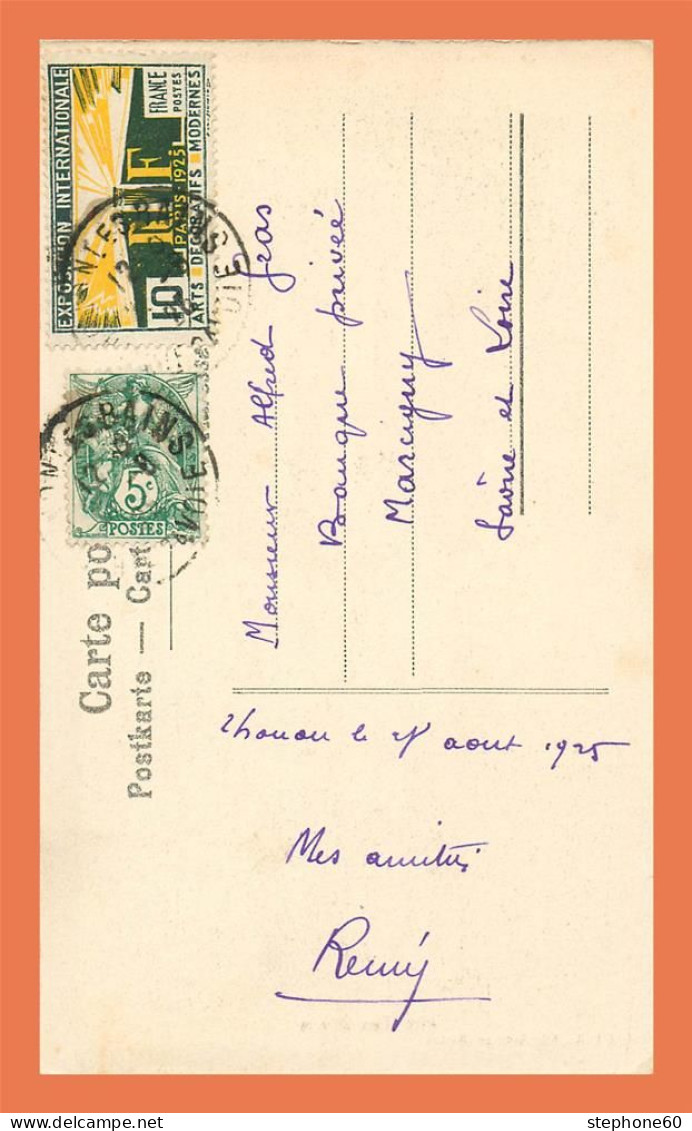 EXPOSITION INTERNATIONALE
PARIS-1925
ARTS DECORATIFS MODERNES
FRANCE
POSTES
10
5c
POSTES
Carte po
Postkarte — Cart
Monsieur Alfred Gras
Banque privée
Marcigny
Saône et Loire
Thonon le août 1925
Mes amitiés
Remy
stephone60